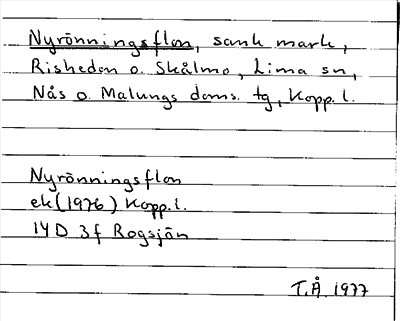 Nyrönningsflon, sank mark,
Risheden o. Skålmo, Lima sn,
Nås o. Malungs doms. tg, Kopp. l.
Nyrönningsflon
ek (1976) Kopp. l.
14D 3f Rogsjön
T.Å. 1977